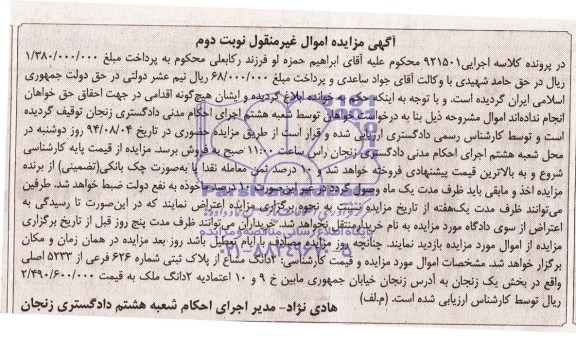 آگهی مزایده اموال غیرمنقول نوبت دوم
در پرونده کلاسه اجرایی۹۲۱۵۰۱ محکوم علیه آقای ابراهیم حمزه لو فرزند رکابعلی محکوم به پرداخت مبلغ ۱/۳۸۰/۰۰۰/۰۰۰
ریال در حق حامد شهیدی با وکالت آقای جواد ساعدی و پرداخت مبلغ ۶۸/۰۰۰/۰۰۰ ریال نیم عشر دولتی در حق دولت جمهوری
اسلامی ایران گردیده است. و با توجه به اینکه حکم به خوانده ابلاغ گردیده و ایشان هیچ‌گونه اقدامی در جهت احقاق حق خواهان
انجام نداده‌اند اموال مشروحه ذیل بنا به درخواست خواهان توسط شعبه هشتم اجرای احکام مدنی دادگستری زنجان توقیف گردیده
است و توسط کارشناس رسمی دادگستری ارزیابی شده و قرار است از طریق مزایده حضوری در تاریخ ۹۴/۰۸/۰۴ روز دوشنبه در
محل شعبه هشتم اجرای احکام مدنی دادگستری زنجان راس ساعت ۱۱:۰۰ صبح به فروش برسد. مزایده از قیمت پایه کارشناسی
شروع و به بالاترین قیمت پیشنهادی فروخته خواهد شد و ۱۰ درصد ثمن معامله نقدا یا به‌صورت چک بانکی(تضمینی) از برنده
مزایده اخذ و مابقی باید ظرف مدت یک ماه وصول گردد در غیر این صورت ۱۰ درصد ماخوذه به نفع دولت ضبط خواهد شد. طرفین
می‌توانند ظرف مدت یک‌هفته از تاریخ مزایده نسبت به نحوه برگزاری مزایده اعتراض نمایند که در این‌صورت تا رسیدگی به
اعتراض از سوی دادگاه مورد مزایده به نام خریدار منتقل نخواهد شد. خریداران می‌توانند ظرف مدت پنج روز قبل از تاریخ برگزاری
مزایده از اموال مورد مزایده بازدید نمایند. چنانچه روز مزایده مصادف با ایام تعطیل باشد روز بعد مزایده در همان زمان و مکان
برگزار خواهد شد. مشخصات اموال مورد مزایده و قیمت کارشناسی: ۲دانگ مشاع از پلاک ثبتی شماره ۶۲۶ فرعی از ۵۲۳۳ اصلی
واقع در بخش یک زنجان به آدرس زنجان خیابان جمهوری مابین خ ۹ و ۱۰ اعتمادیه ۲دانگ ملک به قیمت ۲/۴۹۰/۶۰۰/۰۰۰
ریال توسط کارشناس ارزیابی شده است. (م.لف)
هادی نژاد- مدیر اجرای احکام شعبه هشتم دادگستری زنجان